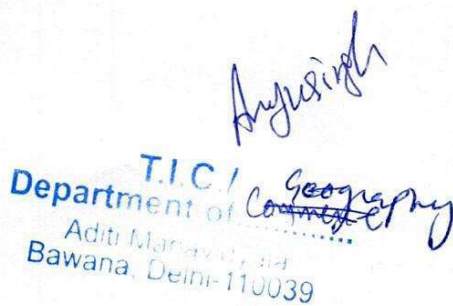 Anjusingh
T.I.C./
Department of Commerce Geography
Aditi Mahavidyalaya
Bawana, Delhi-110039